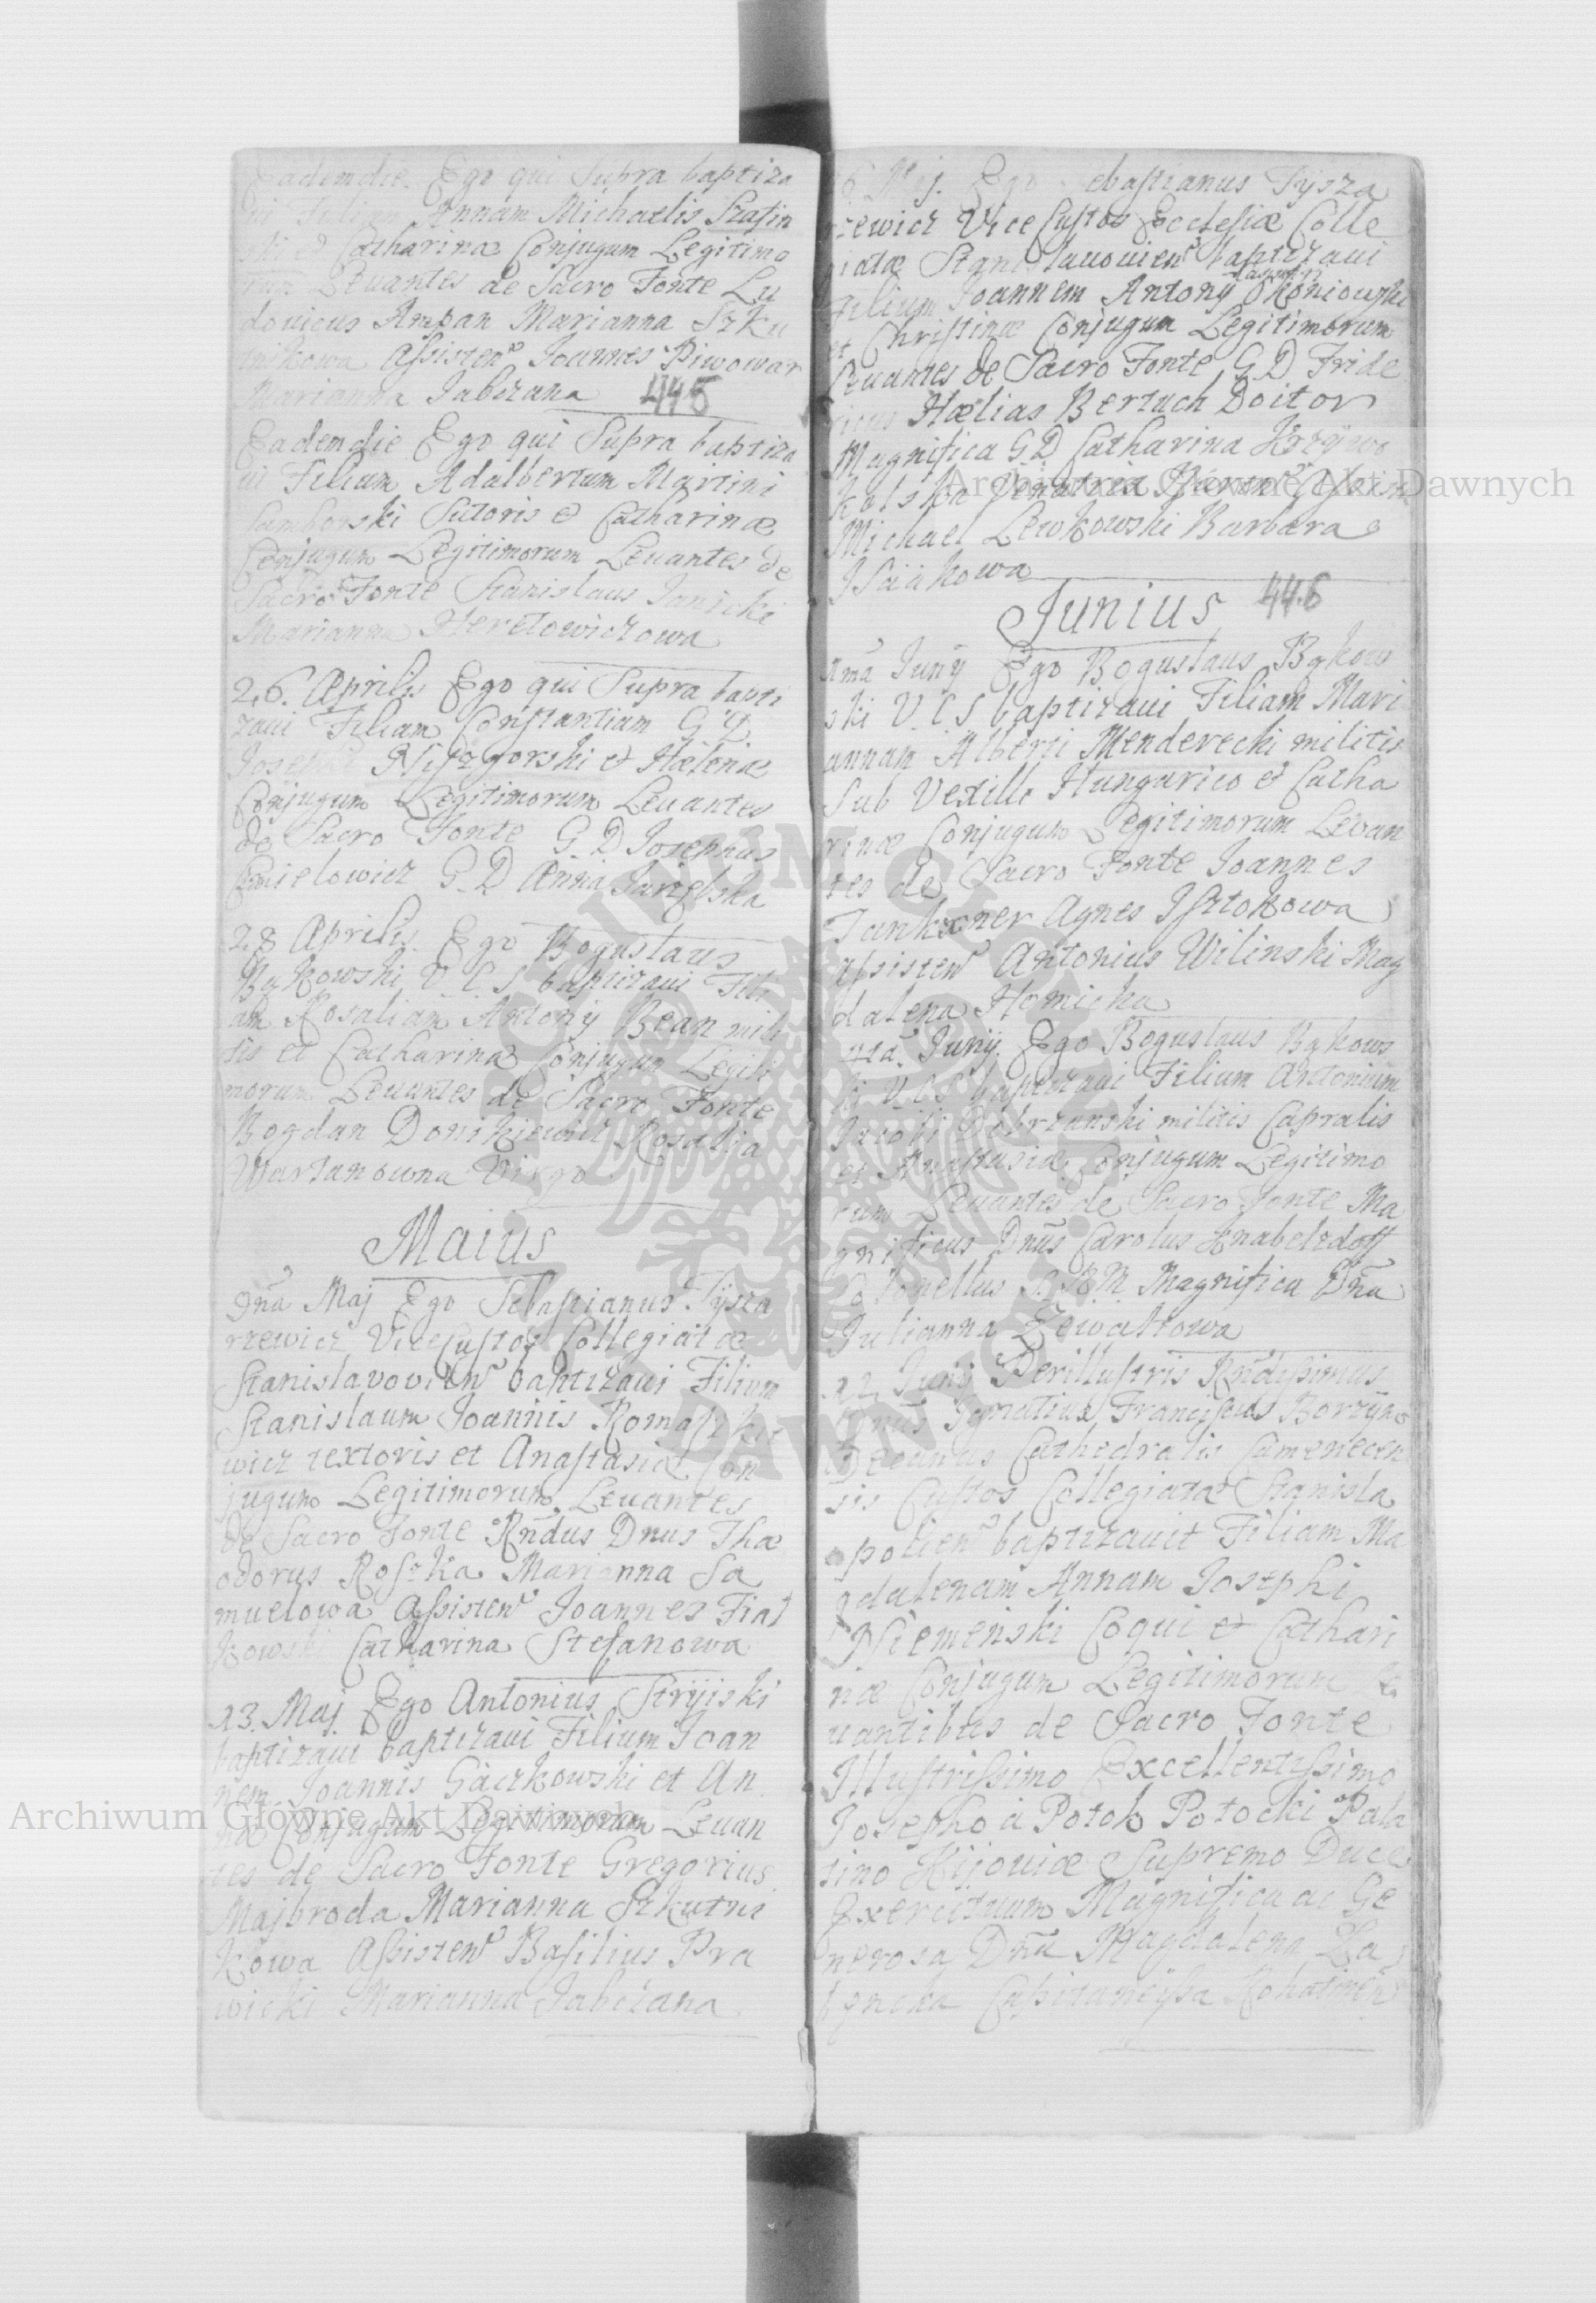 Eademdie Ego qui Supra baptiza
vi Filiam Annam Michaelis Szasin
ski et Catharinæ Conjugum Legitimo
rum Levantes de Sacro Fonte Lu
dovicus Ampan Marianna Szku
tnikowa Assisten Joannes Piwowar
Marianna Jabczana 445
Eademdie Ego qui Supra baptiza
vi Filium Adalbertum Martini
Samborski Sutoris et Catharinæ
Conjugum Legitimorum Levantes de
Sacro Fonte Stanislaus Janicki
Marianna Heretowiczowa
26. Aprilis Ego qui Supra bapti
zaui Filiam Constantiam G D
Josephi et Hælenæ
Conjugum Legitimorum Levantes
de Sacro Fonte G D Josephus
G D Anna
28 Aprilis. Ego Bogustaus
Bykowski V C S baptizaui Fili
am Rosaliam Antonij Bean mili
tis et Catharinæ Conjugum Legiti
morum Levantes de Sacro Fonte
Bogdan Donikiewicz Rosalia
Wartanowna Virgo
Maius
Dnã Maj Ego Sebastianus Tysza
rzewicz ViceCustos Collegiatæ
Stanislavovien baptizaui Filium
Stanislaum Joannis Romaszke
wicz textoris et Anastasiæ Con
jugum Legitimorum Levantes
de Sacro Fonte Rndus Dnus Thæ
odorus Roszka Marianna Sa
muelowa Assisten Joannes Fiał
kowski Catharina Stefanowa
13. Maj. Ego Antonius Stryiski
baptizaui baptizaui Filium Joan
nem Joannis Gaczkowski et An
næ Conjugum Legitimorum Levan
tes de Sacro Fonte Gregorius
Majbroda Marianna Szkutni
kowa Assisten Basilius Pra
wicki Marianna Jabczana
16 Maj. Ego Sebastianus Tysza
rzewicz Vice Custos Ecclesiæ Colle
giatæ Stanislauouien baptizaui
Filium Joannem Antonij Skoniowski
et Christinæ Conjugum Legitimorum
Levantes de Sacro Fonte G D Fride
ricus Hælias Bertuch Doitor
Magnifica G D Catharina Krzywo
kolska
Michael Lewkowski Barbara
Isaakowa
Junius 446
1mã Junij Ego Bogustaus Bykow
ski V C S baptizaui Filiam Mari
annam Alberti Menderecki militis
Sub Vexillo Hungarico et Catha
rinæ Conjugum Legitimorum Levan
tes de Sacro Fonte Joannes
Tankxner Agnes Isztokowa
Assisten Antonius Wilinski Mag
dalena Homicka
4ta Junij Ego Bogustaus Bykows
ki V C S baptizaui Filium Antonium
Jacobi militis Capralis
et Anastasiæ Conjugum Legitimo
rum Levantes de Sacro Fonte Ma
gnificus Dnus Carolus Knabelzdoff
Colonellus S. R M Magnifica Dnã
Julianna Zewaltowa
12 Junij Perillustris Rndissimus
Dnus Ignatius Franciscus
Decanus Cathedralis Camenecen
sis Custos Collegiatæ Stanisla
opolien baptizauit Filiam Ma
gdalenam Annam Josephi
Niemenski Coqui et Cathari
næ Conjugum Legitimorum Le
vantibus de Sacro Fonte
Illustrissimo Excellentissimo
Josepho à Potok Potocki Pala
tino Kijoviæ Supremo Duce
Exercituum Magnifica ac Ge
nerosa Dnã Magdalena

Archiwum Główne Akt Dawnych
Archiwum Główne Akt Dawnych
ARCHIWUM GŁÓWNE
AKT DAWNYCH